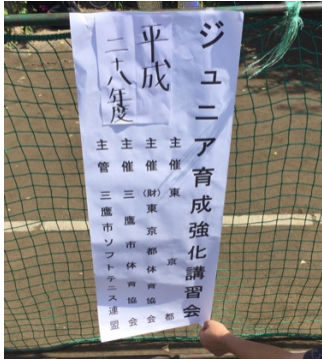 ジュニア育成強化講習会
平成
二十八年度
主催東京都
主催(財)東京都体育協会
主催三鷹市体育協会
主管三鷹市ソフトテニス連盟